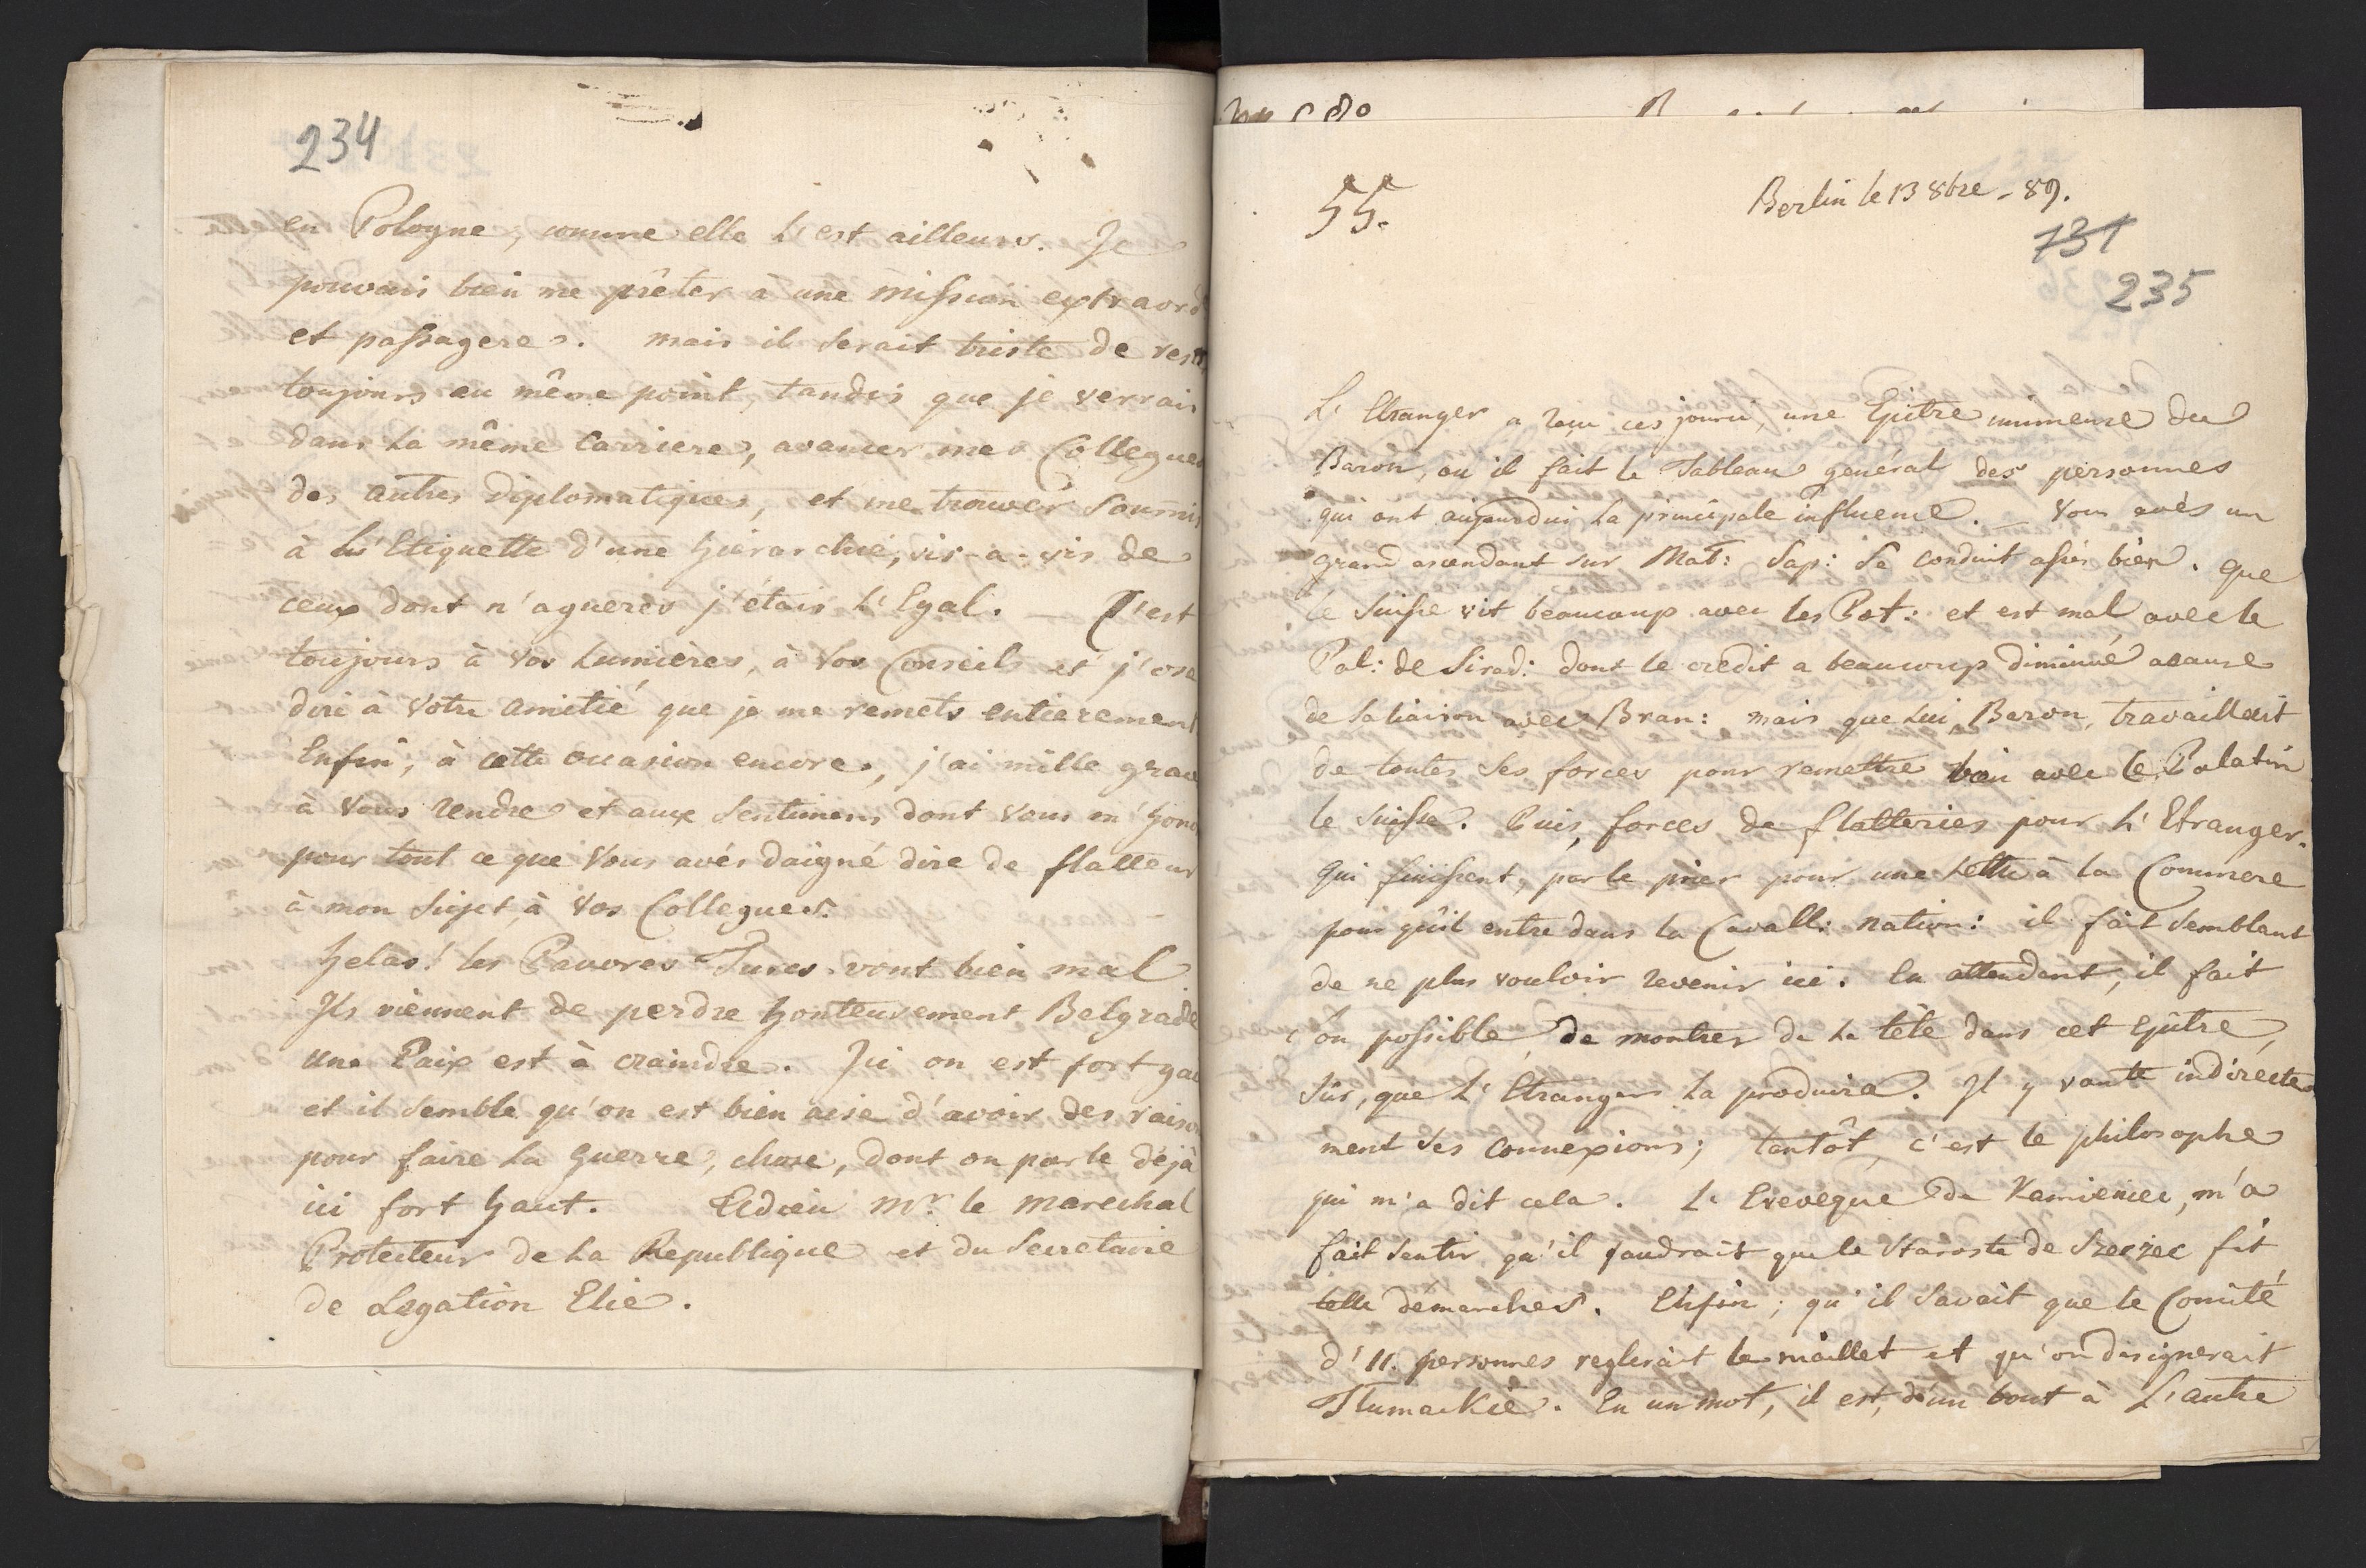 234
en Pologne, comme elle l'est ailleurs. Je
pouvais bien me prêter à une mission extraord
et passagere. mais il serait triste de rest
toujours au même point, tandis que je verrais
dans la même Carriere, avancer mes Collegues
des autres diplomatiques, et me trouver soumis
à l'Etiquette d'une hierarchie, vis-a-vis de
ceux dont n'agueres j'étais l'Egal. — C'est
toujours à vos Lumières, à vos Conseils et j'ose
dire à votre amitié que je me remets entierement
Enfin, à cette occasion encore, j'ai mille grace
à vous rendre et aux sentimens dont vous m'hono
pour tout ce que vous avés daigné dire de flatteur
à mon sujet à vos Collegues.
Helas! les Pauvres Turcs vont bien mal
Ils viennent de perdre honteusement Belgrade
une Paix est à craindre. Ici on est fort gai
et il semble qu'on est bien aise d'avoir des raiso
pour faire la guerre, chose, dont on parle déjà
ici fort haut. Adieu Mr. le marechal
Protecteur de la Republique et du Secretaire
de Legation Elie.
55.
Berlin le 13 8bre - 89.
131
235
L'Etranger a reçu ces jours, une Epitre immense du
Baron, ou il fait le Tableau général des personnes
qui ont aujourdui la principale influence. — Vous avès un
grand ascendant sur Mat: Sap: se conduit assés bien. que
le Suisse vit beaucoup avec les Pot: et est mal avec le
Pal: de Sirad: dont le credit a beaucoup diminué acause
de sa liaison avec Bran: mais que lui Baron, travaillait
de toutes ses forces pour remettre bien avec le Palatin
le Suisse. Puis, forces de flatteries pour l'Etranger.
qui finissent, par le prier pour une Lettre à la Commere
pour qu'il entre dans la Cavall: nation: il fait semblant
de ne plus vouloir revenir ici. En attendant, il fait
son possible de montrer de la tête dans cet Epitre,
sûr, que l'Etranger la produira. Il y vante indirecte
ment ses connexions; tantôt, c'est le philosophe
qui m'a dit cela. L'Eveque de Kamieniec, m'a
fait sentir qu'il faudrait que le Staroste de fit
telle démarches. Enfin; qu'il savait que le Comité
d'11. personnes reglerait le maillet et qu'on designerait
Tlumackie. En un mot, il est, d'un bout à l'autre